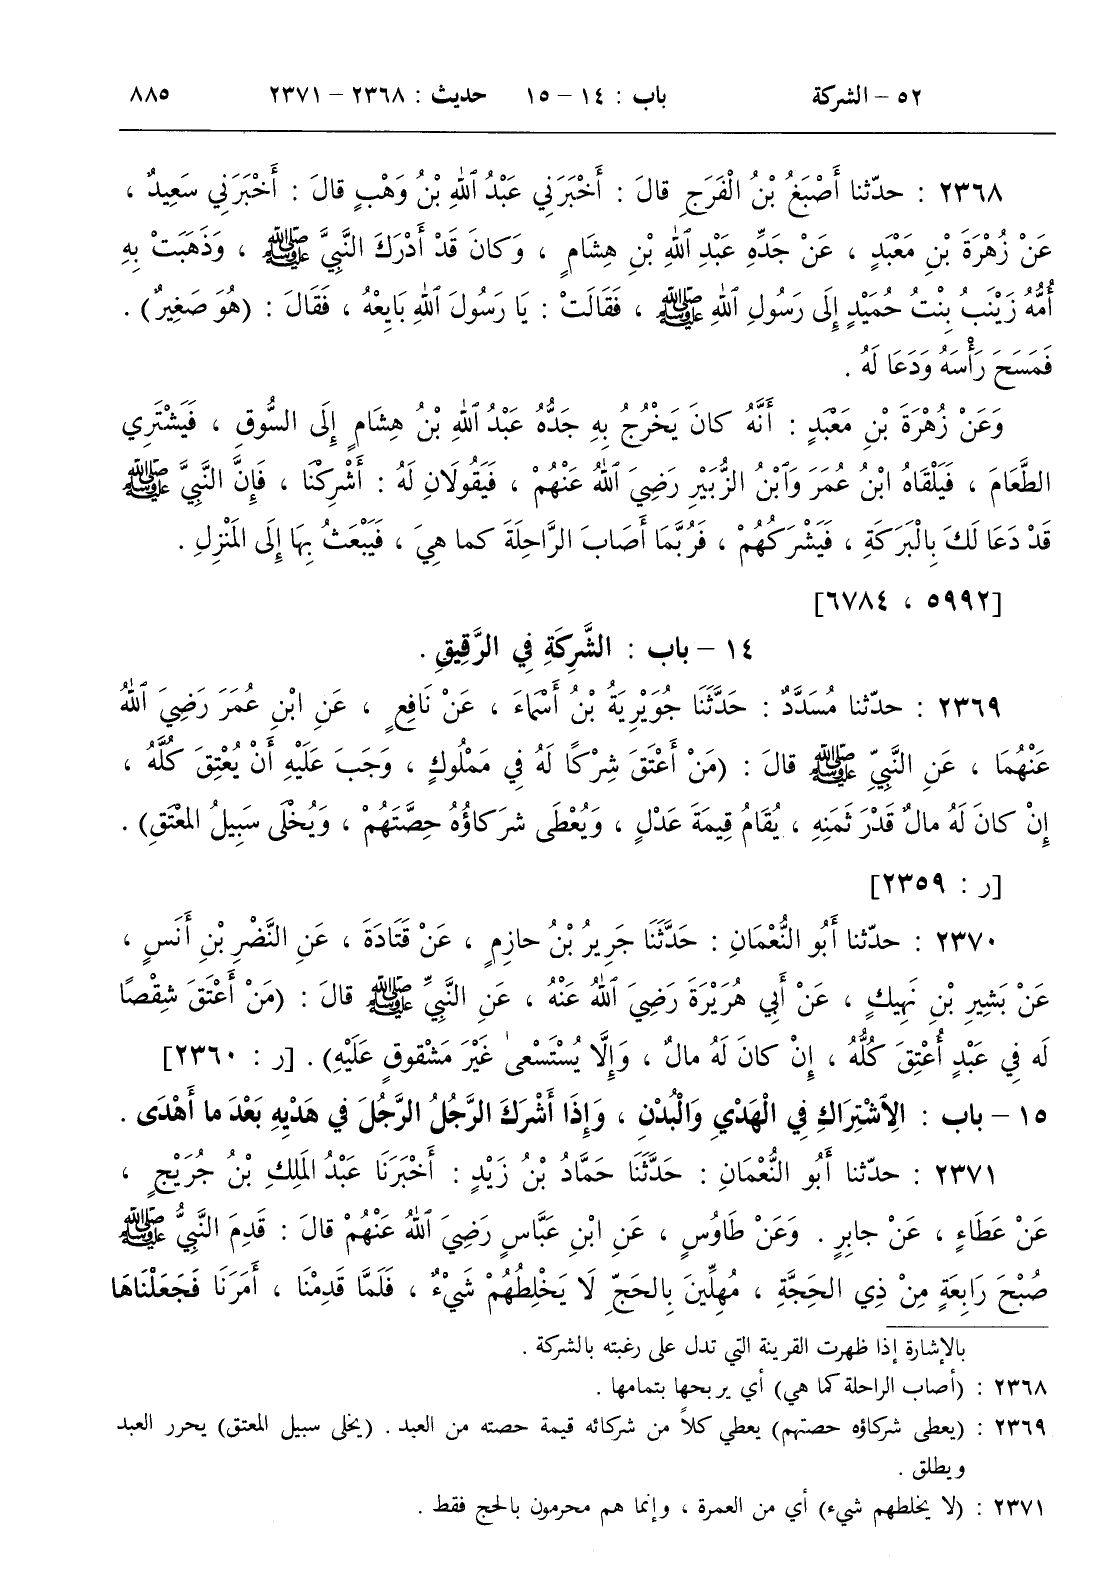 ٥٢ – الشركة باب : ١٤ – ١٥ حديث : ٢٣٦٨ – ٢٣٧١ ٨٨٥
٢٣٦٨ : حدّثنا أَصْبَغُ بْنُ الْفَرَجِ قالَ : أَخْبَرَنِي عَبْدُ ٱللهِ بْنُ وَهْبٍ قالَ : أَخْبَرَنِي سَعِيدٌ ،
عَنْ زُهْرَةَ بْنِ مَعْبَدٍ ، عَنْ جَدِّهِ عَبْدِ ٱللهِ بْنِ هِشَامٍ ، وَكانَ قَدْ أَدْرَكَ النَّبِيَّ ﷺ ، وَذَهَبَتْ بِهِ
أُمُّهُ زَيْنَبُ بِنْتُ حُمَيْدٍ إِلَى رَسُولِ ٱللهِ ﷺ ، فَقَالَتْ : يَا رَسُولَ ٱللهِ بَايِعْهُ ، فَقَالَ : (هُوَ صَغِيرٌ) .
فَمَسَحَ رَأْسَهُ وَدَعَا لَهُ .
وَعَنْ زُهْرَةَ بْنِ مَعْبَدٍ : أَنَّهُ كانَ يَخْرُجُ بِهِ جَدُّهُ عَبْدُ ٱللهِ بْنُ هِشَامٍ إِلَى السُّوقِ ، فَيَشْتَرِي
الطَّعَامَ ، فَيَلْقَاهُ ابْنُ عُمَرَ وَٱبْنُ الزُّبَيْرِ رَضِيَ ٱللهُ عَنْهُمْ ، فَيَقُولَانِ لَهُ : أَشْرِكْنَا ، فَإِنَّ النَّبِيَّ ﷺ
قَدْ دَعَا لَكَ بِالْبَرَكَةِ ، فَيَشْرَكُهُمْ ، فَرُبَّمَا أَصَابَ الرَّاحِلَةَ كما هِيَ ، فَيَبْعَثُ بِهَا إِلَى المَنْزِلِ .
[٥٩٩٢ ، ٦٧٨٤]
١٤ – باب : الشَّرِكَةِ فِي الرَّقِيقِ .
٢٣٦٩ : حدّثنا مُسَدَّدٌ : حَدَّثَنَا جُوَيْرِيَةُ بْنُ أَسْمَاءَ ، عَنْ نَافِعٍ ، عَنِ ابْنِ عُمَرَ رَضِيَ ٱللهُ
عَنْهُمَا ، عَنِ النَّبِيِّ ﷺ قالَ : (مَنْ أَعْتَقَ شِرْكًا لَهُ فِي مَمْلُوكٍ ، وَجَبَ عَلَيْهِ أَنْ يُعْتِقَ كُلَّهُ ،
إِنْ كانَ لَهُ مالٌ قَدْرَ ثَمَنِهِ ، يُقَامُ قِيمَةَ عَدْلٍ ، وَيُعْطَى شركاؤُهُ حِصَّتَهُمْ ، وَيُخْلَى سَبِيلُ المعْتَقِ) .
[ر : ٢٣٥٩]
٢٣٧٠ : حدّثنا أَبُو النُّعْمَانِ : حَدَّثَنَا جَرِيرُ بْنُ حازِمٍ ، عَنْ قَتَادَةَ ، عَنِ النَّضْرِ بْنِ أَنَسٍ ،
عَنْ بَشِيرِ بْنِ نَهِيكٍ ، عَنْ أَبِي هُرَيْرَةَ رَضِيَ ٱللهُ عَنْهُ ، عَنِ النَّبِيِّ ﷺ قالَ : (مَنْ أَعْتَقَ شِقْصًا
لَه فِي عَبْدٍ أُعْتِقَ كُلُّهُ ، إِنْ كانَ لَهُ مالٌ ، وَإِلَّا يُسْتَسْعىٰ غَيْرَ مَشْقوقٍ عَلَيْهِ) . [ر : ٢٣٦٠]
١٥ – باب : الِٱشْتِرَاكِ فِي الْهَدْيِ وَالْبُدْنِ ، وَإِذَا أَشْرَكَ الرَّجُلُ الرَّجُلَ فِي هَدْيِهِ بَعْدَ ما أَهْدَى .
٢٣٧١ : حدّثنا أَبُو النُّعْمَانِ : حَدَّثَنَا حَمَّادُ بْنُ زَيْدٍ : أَخْبَرَنَا عَبْدُ المَلِكِ بْنُ جُرَيْجٍ ،
عَنْ عَطَاءٍ ، عَنْ جابِرٍ . وَعَنْ طَاوُسٍ ، عَنِ ابْنِ عَبَّاسٍ رَضِيَ ٱللهُ عَنْهُمْ قالَ : قَدِمَ النَّبِيُّ ﷺ
صُبْحَ رَابِعَةٍ مِنْ ذِي الحَجَّةِ ، مُهِلِّينَ بِالحَجِّ لَا يَخْلِطُهُمْ شَيْءٌ ، فَلَمَّا قَدِمْنَا ، أَمَرَنَا فَجَعَلْنَاهَا
بالإشارة إذا ظهرت القرينة التي تدل على رغبته بالشركة .
٢٣٦٨ : (أصاب الراحلة كما هي) أي يربحها بتمامها .
٢٣٦٩ : (يعطى شركاؤه حصتهم) يعطي كلاً من شركائه قيمة حصته من العبد . (يخلى سبيل المعتق) يحرر العبد
ويطلق .
٢٣٧١ : (لا يخلطهم شيء) أي من العمرة ، وإنما هم محرمون بالحج فقط .